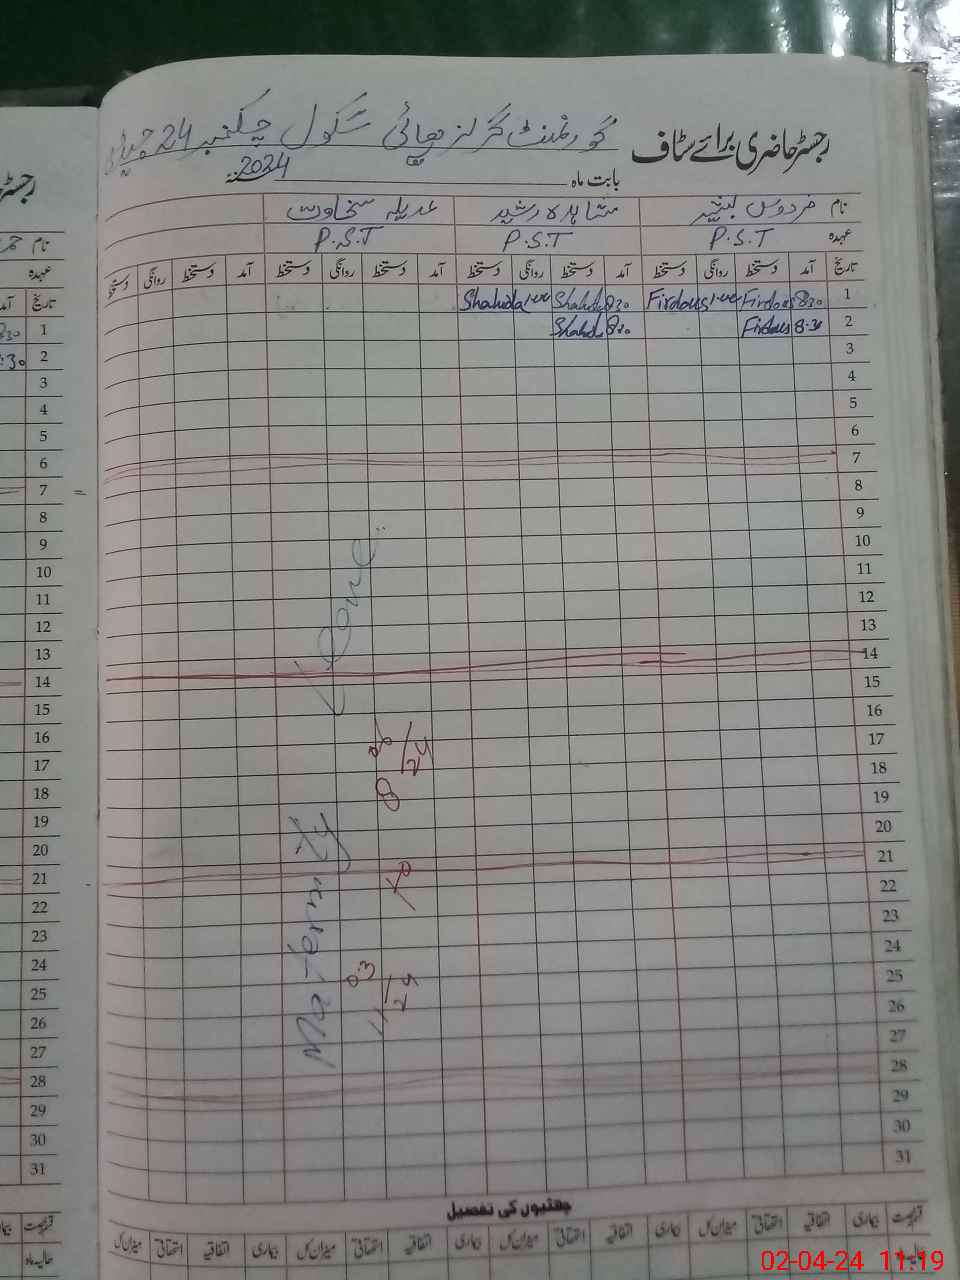 رجسٹر حاضری برائے سٹاف گورنمنٹ گرلز ہائی سکول چکنمبر 24
بابت ماہ 2024ء
نام فردوس بشیر شاہدہ رشید عدیلہ سخاوت
عہدہ P.S.T P.S.T P.S.T
تاریخ آمد دستخط روانگی دستخط آمد دستخط روانگی دستخط آمد دستخط روانگی دستخط آمد دستخط روانگی دستخط
1 8:30 Firdous Firdous 8:30 Shahida Shahida
2 8:30 Firdous 8:30 Shahida
3
4
5
6
7
8
9
10
11
12
13
14
15
16
17
18
19
20
21
22
23
24
25
26
27
28
29
30
31
Leave
Maternity
چھٹیوں کی تفصیل
بیماری اتفاقیہ استحقاقی میزان کل بیماری اتفاقیہ استحقاقی میزان کل بیماری اتفاقیہ استحقاقی میزان کل
حالیہ ماہ
رجسٹر
نام
عہدہ
تاریخ آمد
1 8:30
2 8:30
3
4
5
6
7
8
9
10
11
12
13
14
15
16
17
18
19
20
21
22
23
24
25
26
27
28
29
30
31
حالیہ ماہ
02-04-24 11:19